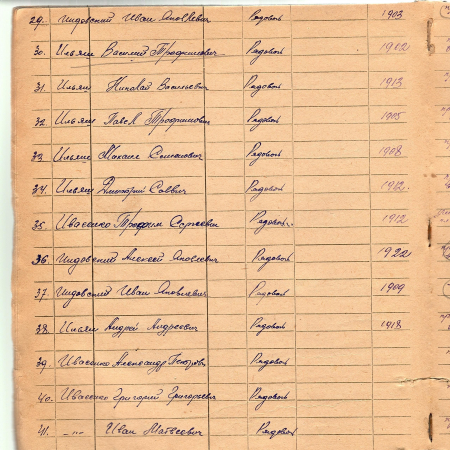 29. Чидовский Иван Яковлевич Рядовой 1903
30. Ильяш Василий Трофимович Рядовой 1902
31. Ильяш Николай Васильевич Рядовой 1913
32. Ильяш Павел Трофимович Рядовой 1905
33. Ильяш Максим Семенович Рядовой 1908
34. Ильяш Дмитрий Саввич Рядовой 1912.
35. Ивасенко Трофим Сергеевич Рядовой. 1912
36. Чидовский Алексей Яковлевич Рядовой 1922
37. Чидовский Иван Яковлевич Рядовой 1909
38. Ильяш Андрей Андреевич Рядовой 1918
39. Ивасенко Александр Петрович Рядовой
40. Ивасенко Григорий Григорьевич Рядовой
41. -„- Иван Матвеевич Рядовой